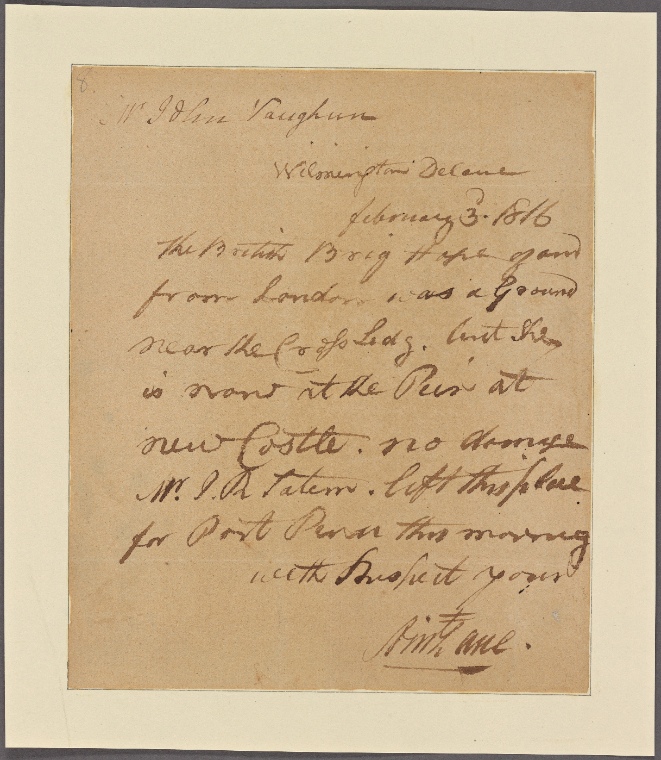 8.
Mr John Vaughun
Wilmington Delaue
february 3. 1816
the British Brig Hope
from London was a Ground
near the Cross Ledg. but She
is now at the Peir at
new Costle. no damge
Mr. J. R Tatem. left this place
for Port this morning
with Respect yours